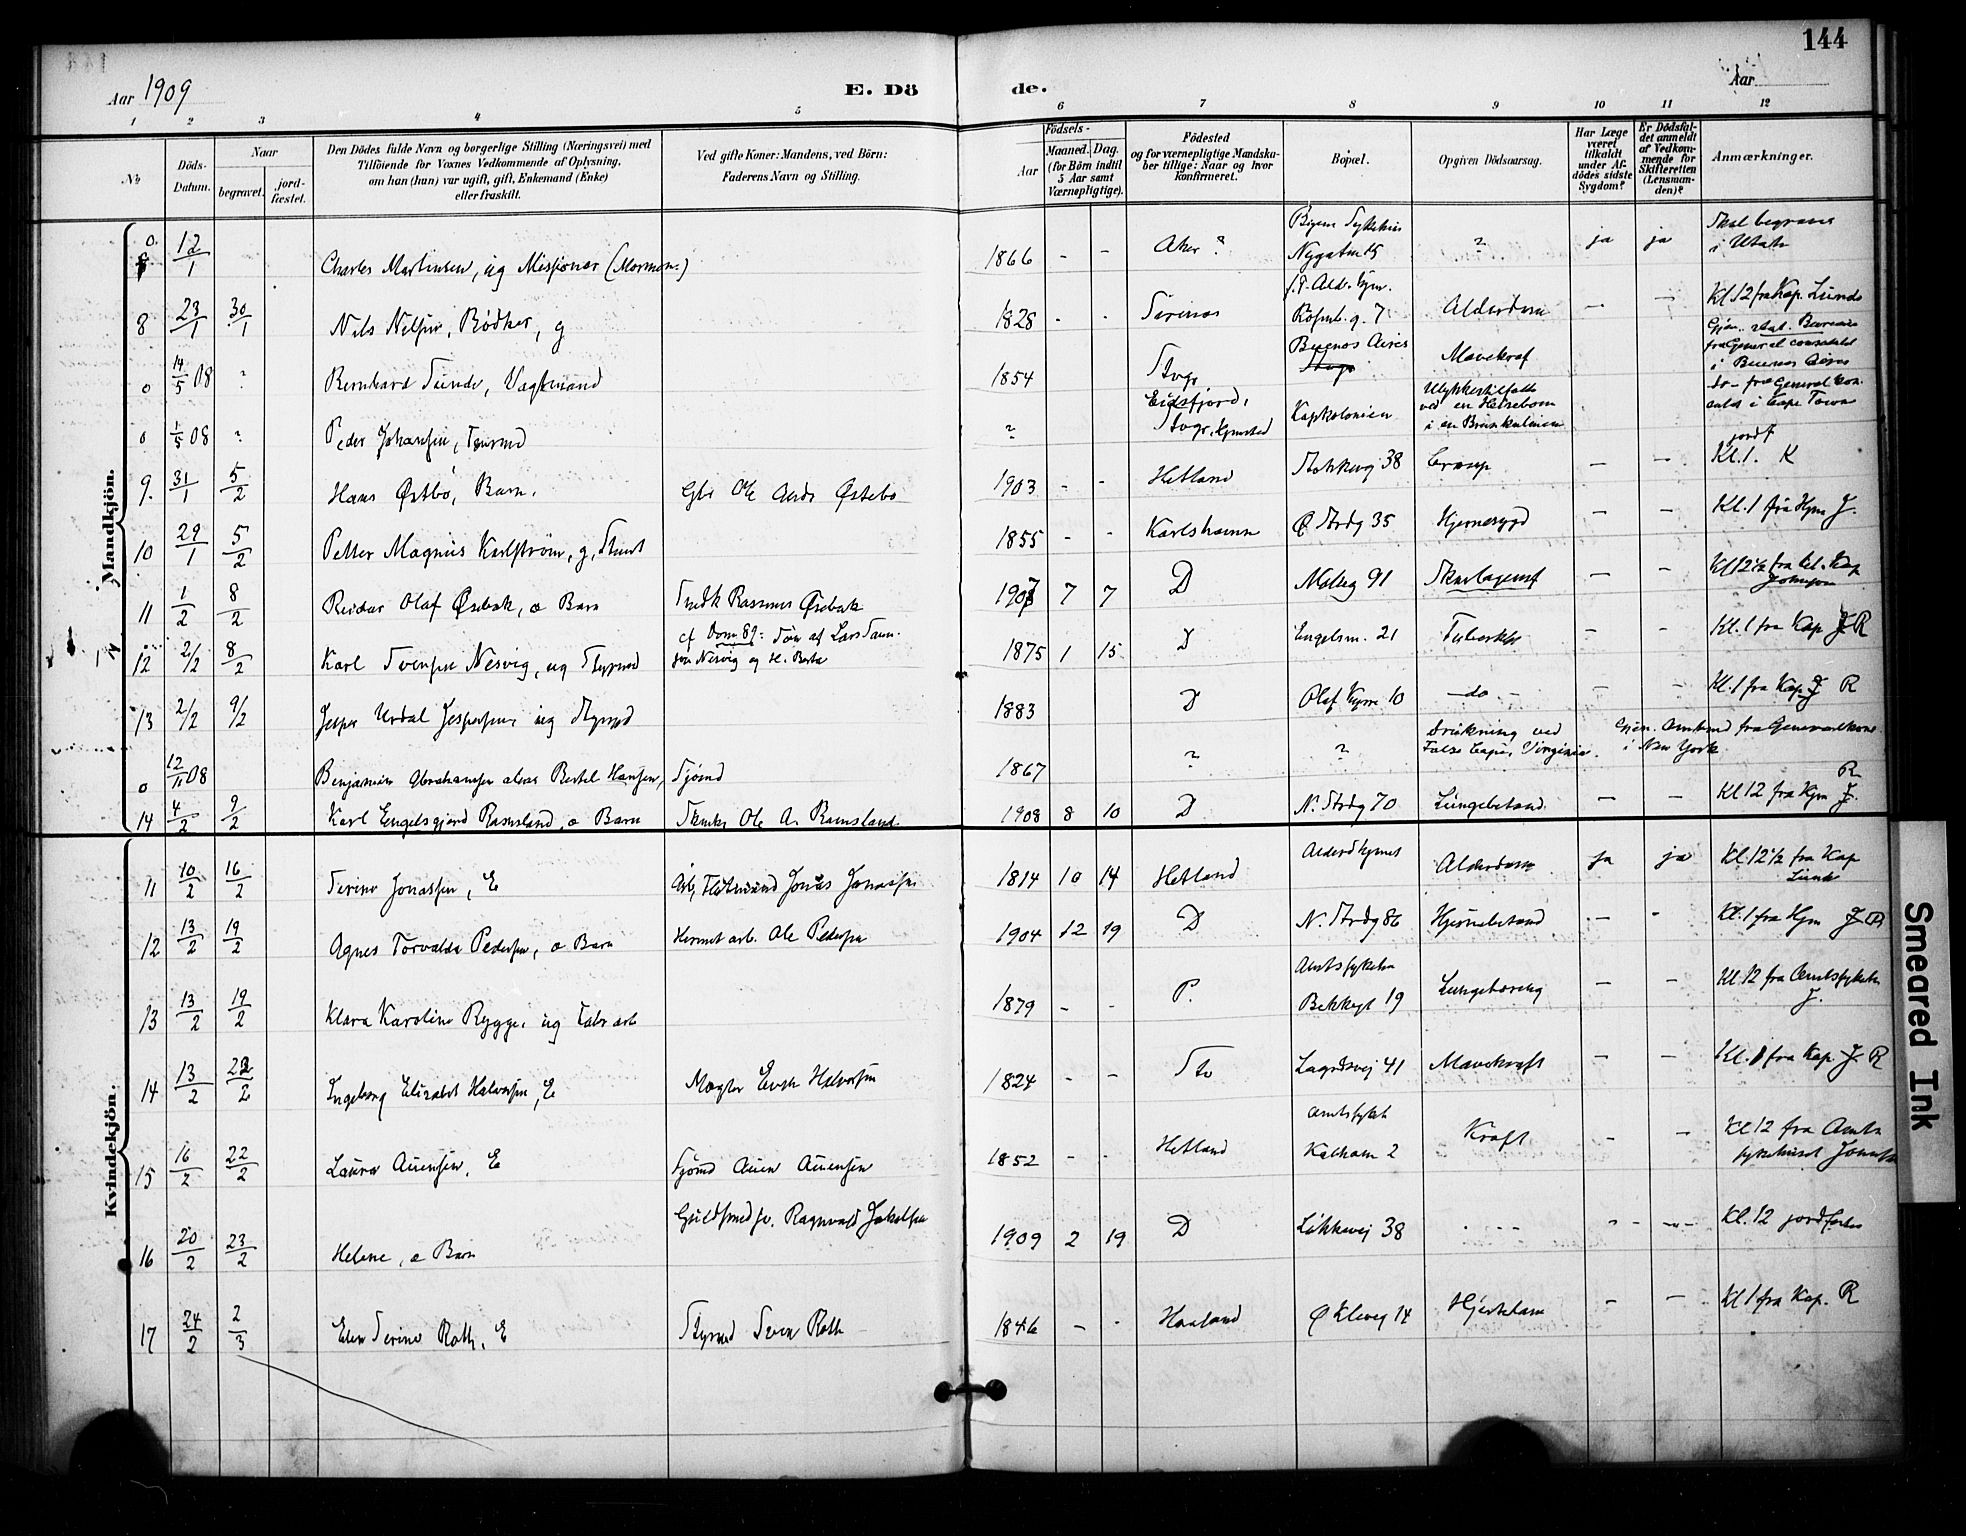 144
Aar 1909
E. Döde.
Aar
1 2 3 4 5 6 7 8 9 10 11 12
№
Döds-Datum.
Naar
begravet.
jord-fæstet.
Den Dödes fulde Navn og borgerlige Stilling (Næringsvei) med
Tilföiende for Voxnes Vedkommende af Oplysning,
om han (hun) var ugift, gift, Enkemand (Enke)
eller fraskilt.
Ved gifte Koner: Mandens, ved Börn:
Faderens Navn og Stilling.
Födsels-
Aar
Maaned. Dag.
(for Börn indtil
5 Aar samt
Værnepligtige).
Födested
og for værnepligtige Mandska-
ber tillige: Naar og hvor
konfirmeret.
Bopæl.
Opgiven Dödsaarsag.
Har Læge
været
tilkaldt
under Af-
dödes sidste
Sygdom?
Er Dödsfal-
det anmeldt
af Vedkom-
mende for
Skifteretten
(Lensman-
den)?
Anmærkninger.
Mandkjön.
0 12/1 Charles Martinsen, ug Missionær (Mormon.) 1866 - - Aker ? Byens Sykehus Nygatn 15 ? ja ja Skal begraves i Utah
8 23/1 30/1 Nils Nilsen, Bødker, g 1828 - - Sirenes Rosenb. g. 7 Alderdom — — Kl 12 fra Kap. Lunde
0 14/5 08 ? Bernhard Tunde, Vagtmand 1854 Stvgr Buenos Aires Mavekræf Gjen. stat. Bureau fra General consulatet i Buenos Aires
0 1/5 08 ? Peder Johansen, Tømmd ? Eidsfjord, Stvgr. hjemsted Kapkolonien Ulykkestilfælde ved en Heisebom i en Brønkulmine do - fra General kon. sulat i Cape Town
9. 31/1 5/2 Hans Østbø, Barn. Gbr Ole Ands Østebø 1903 - - Hetland Stokkevj 38 Croup — — jordf Kl. 1. K
10 29/1 5/2 Petter Magnus Karlstrøm, g, Stuert 1855 - - Karlshamn Ø. Strdg 35 Hjernesygd — — Kl. 1 fra Hjm J.
11 1/2 8/2 Reidar Olaf Østbak, æ Barn Snedk Rasmus Østbak 1907 7 7 D Nedreg 91 Skarlagensf — — Kl 12½ fra bel. Kap Johnson
12 2/2 8/2 Karl Svensen Nesvig, ug Styrmd cf Dom 89: Søn af Lars Svensen Nesvig og H. Berta 1875 1 15 D Engelsm. 21 Tuberkl — — Kl. 1 fra Kap J R
13 2/2 9/2 Jesper Urdal Jespersen, ug Styrmd 1883 D Olaf Kyrre 10 — do — — — Kl. 1 fra Kap J R
0 12/11 08 Benjamin Abrahamsen alias Bertel Hansen, Sjømd 1867 ? ? Drukning ved False Cape, Virginia. Gjen. Amtmd fra Generalkons. i New York
14 4/2 9/2 Karl Engelsgjerd Ramsland, æ Barn Skræd Ole A. Ramsland 1908 8 10 D N. Strdg 70 Lungebetænd. — — Kl 12 fra Hjm J. R
Kvindekjön.
11 10/2 16/2 Serine Jonassen, E Arb, Flotmand Jonas Jonassen 1814 10 14 Hetland Alderdhjemet Alderdom ja ja Kl. 12½ fra Kap Lunde
12 13/2 19/2 Agnes Torvalda Pedersen, æ Barn Hermet arb. Ole Pedersen 1904 12 19 D N. Strdg 86 Hjernebetænd — - Kl. 1 fra Hjm J R
13 13/2 19/2 Klara Karoline Rygge, ug Fabr arb 1879 - - P. Amtssykeh Bekkegt 19 Lungetæring — — Kl. 12 fra Amtssykeh J.
14 13/2 22/2 Ingeborg Elisabet Halvorsen, E Mægler Even Halvorsen 1824 - - Stv Lagårdsvej 41 Mavekræft — — Kl. 1 fra Kap. J R
15 16/2 22/2 Laura Auensen, E Sjømd Auen Auensen 1852 - - Hetland Amtssykeh Kalham 2 Kræft — — Kl 12 fra Amts sykehuset Jonass
16 20/2 23/2 Helene, æ Barn Guldsmedsv. Ragnvald Jakobsen 1909 2 19 D Løkkevej 38 - - - - Kl. 12 jordfestes
17 24/2 2/3 Elen Serine Roth, E Styrmd Sven Roth 1846 - - Haaland Ø Klevej 14 Hjertelam — — Kl 1 fra Kap. R
Smeared Ink